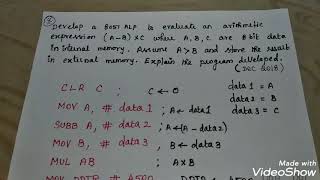 ③
Develop a 8051 ALP to evaluate an arithmetic
expression (A-B)×C where A, B, C are 8 bit data
in internal memory. Assume A>B and store the result
in external memory. Explain the program developed.
(DEC 2018)
CLR C ; C ← 0 data 1 = A
MOV A, # data 1 ; A ← data 1 data 2 = B
SUBB A, # data 2 ; A ← (A - data 2) data 3 = C
MOV B, # data 3 , B ← data 3
MUL AB ; A×B
MOV DPTR # A500
Made with
VideoShow